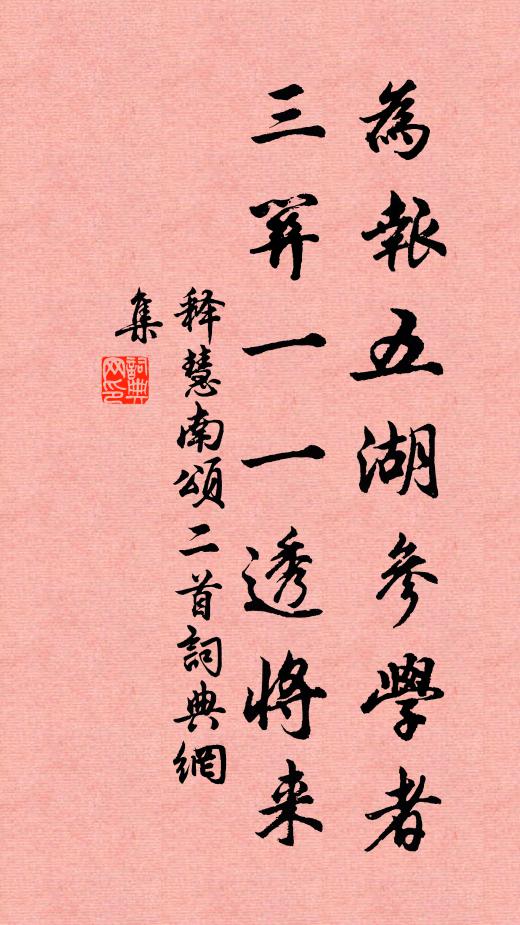 為報五湖參學者
三關一一透將来
释慧南頌二首詞典網
集
詞典网印